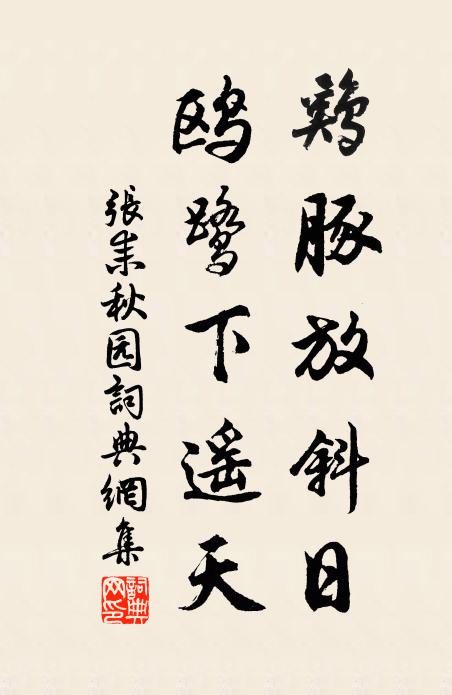 鷄豚放斜日
鸥鹭下遥天
張耒秋园詞典網集
詞典网印